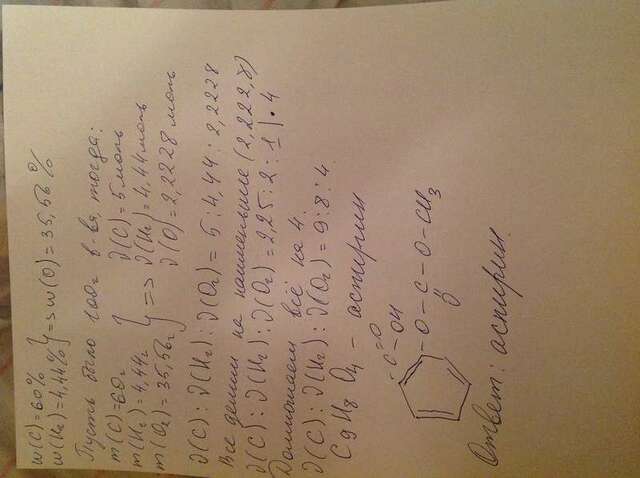 w(C)=60%
w(H₂)=4,44% } => w(O)=35,56%
Пусть было 100г в-ва, тогда:
m(C)=60г
m(H₂)=4,44г
m(O₂)=35,56г } => ∂(C)=5моль
∂(H₂)=4,44моль
∂(O)=2,2228моль
∂(C):∂(H₂):∂(O₂)=5:4,44:2,2228
Все делим на наименьшее (2,2228)
∂(C):∂(H₂):∂(O₂)=2,25:2:1 |•4
Домножаем всё на 4.
∂(C):∂(H₂):∂(O₂)=9:8:4.
C9H8O4 – аспирин
C=O
C–OH
–O–C–O–CH₃
O
Ответ: аспирин.